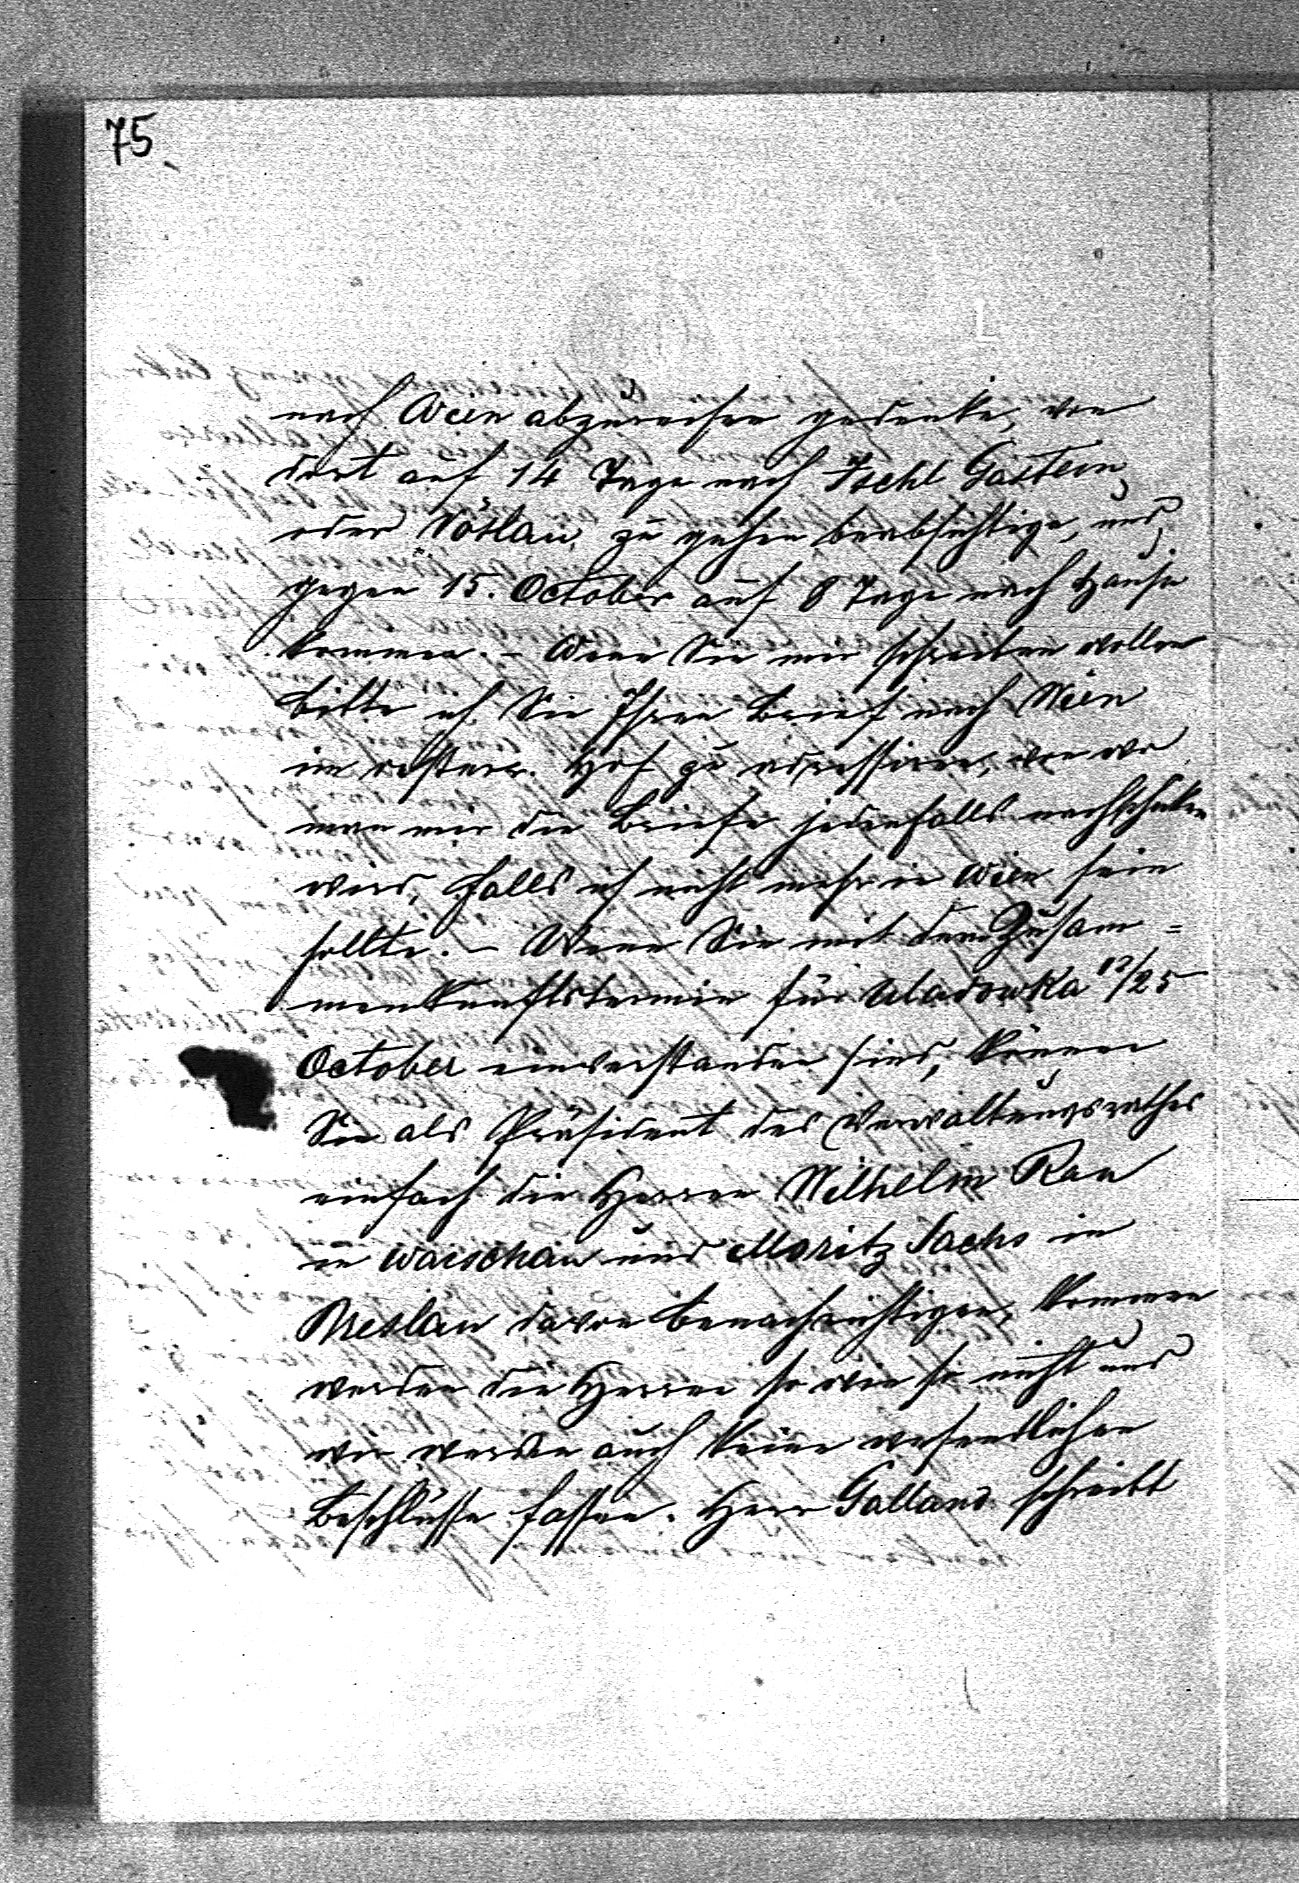 75.
nach Wien abzureisen gedenke, von
dort auf 14 Tage nach Ischl Gastein
oder Vöslau zu gehen beabsichtige, und
gegen 15. October auf 8 Tage nach Hause
komme. – Wenn Sie mir schreiben wollen
bitte ich Sie Ihren Brief nach Wien
im oesterr. Hof zu adressiren, von wo
man mir die Briefe jedenfalls nachschicken
wird, falls ich nicht mehr in Wien sein
sollte. – Wenn Sie mit dem Zusam=
menkunftstermin für Uladowka 13/25
October einverstanden sind, können
Sie als Präsident des Verwaltungsrathes
einfach die Herren Wilhelm Rau
in Warschau und Moritz Sachs in
Breslau davon benachrichtigen, kommen
werden die Herren so wie so nicht und
wir werden auch keine wesentlichen
Beschlüsse fassen. Herr Galland schreibt